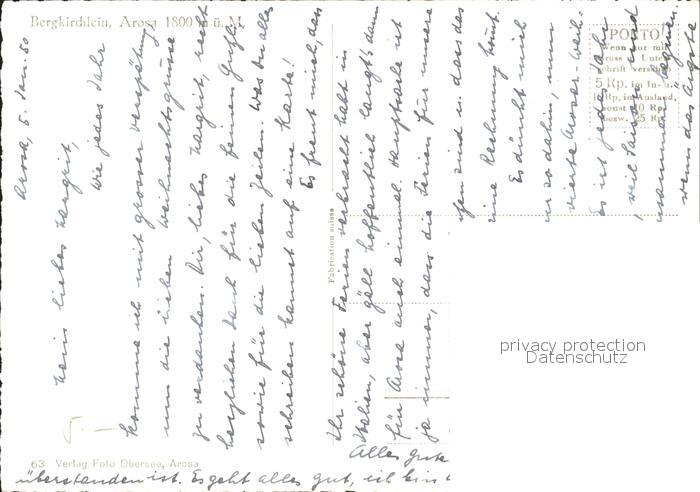 Bergkirchlein, Arosa 1800 m ü. M.
Arosa, 5. Jan. 50
Mein liebes Margrit,
Wie jedes Jahr
komme ich mit grosser Verspätung
um die lieben Weihnachtsgrüsse
zu verdanken. Dir, liebes Margrit, recht
herzlichen Dank für die feinen Gutzli
sowie für die lieben Zeilen. Was du alles
schreiben kannst auf eine Karte!
Es freut mich, dass
Ihr schöne Ferien verbracht habt in
Italien, aber gäll hoffentlich langt's dann
für Arosa auch einmal. Hauptsache ist
ja immer, dass die Ferien für unsere
sind u. dass das
eine Rechnung
Es dünkt mich
so dahin, nun
vierte Aroser Weih-
Es ist jedes Jahr
, weil
wenn das Ärgste
überstanden ist. Es geht alles gut, ich bin
Alles gute
PORTO
Wenn nur mit
Gruss u. Unter-
schrift versehen
5 Rp. im In- u.
10 Rp. im Ausland,
sonst 10 Rp.
bezw. 25 Rp.
Fabrication suisse
63 Verlag Foto Obersee, Arosa
privacy protection
Datenschutz